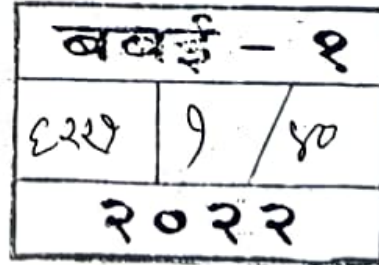 बबई - १
६२२७ १ / ४०
२०२२